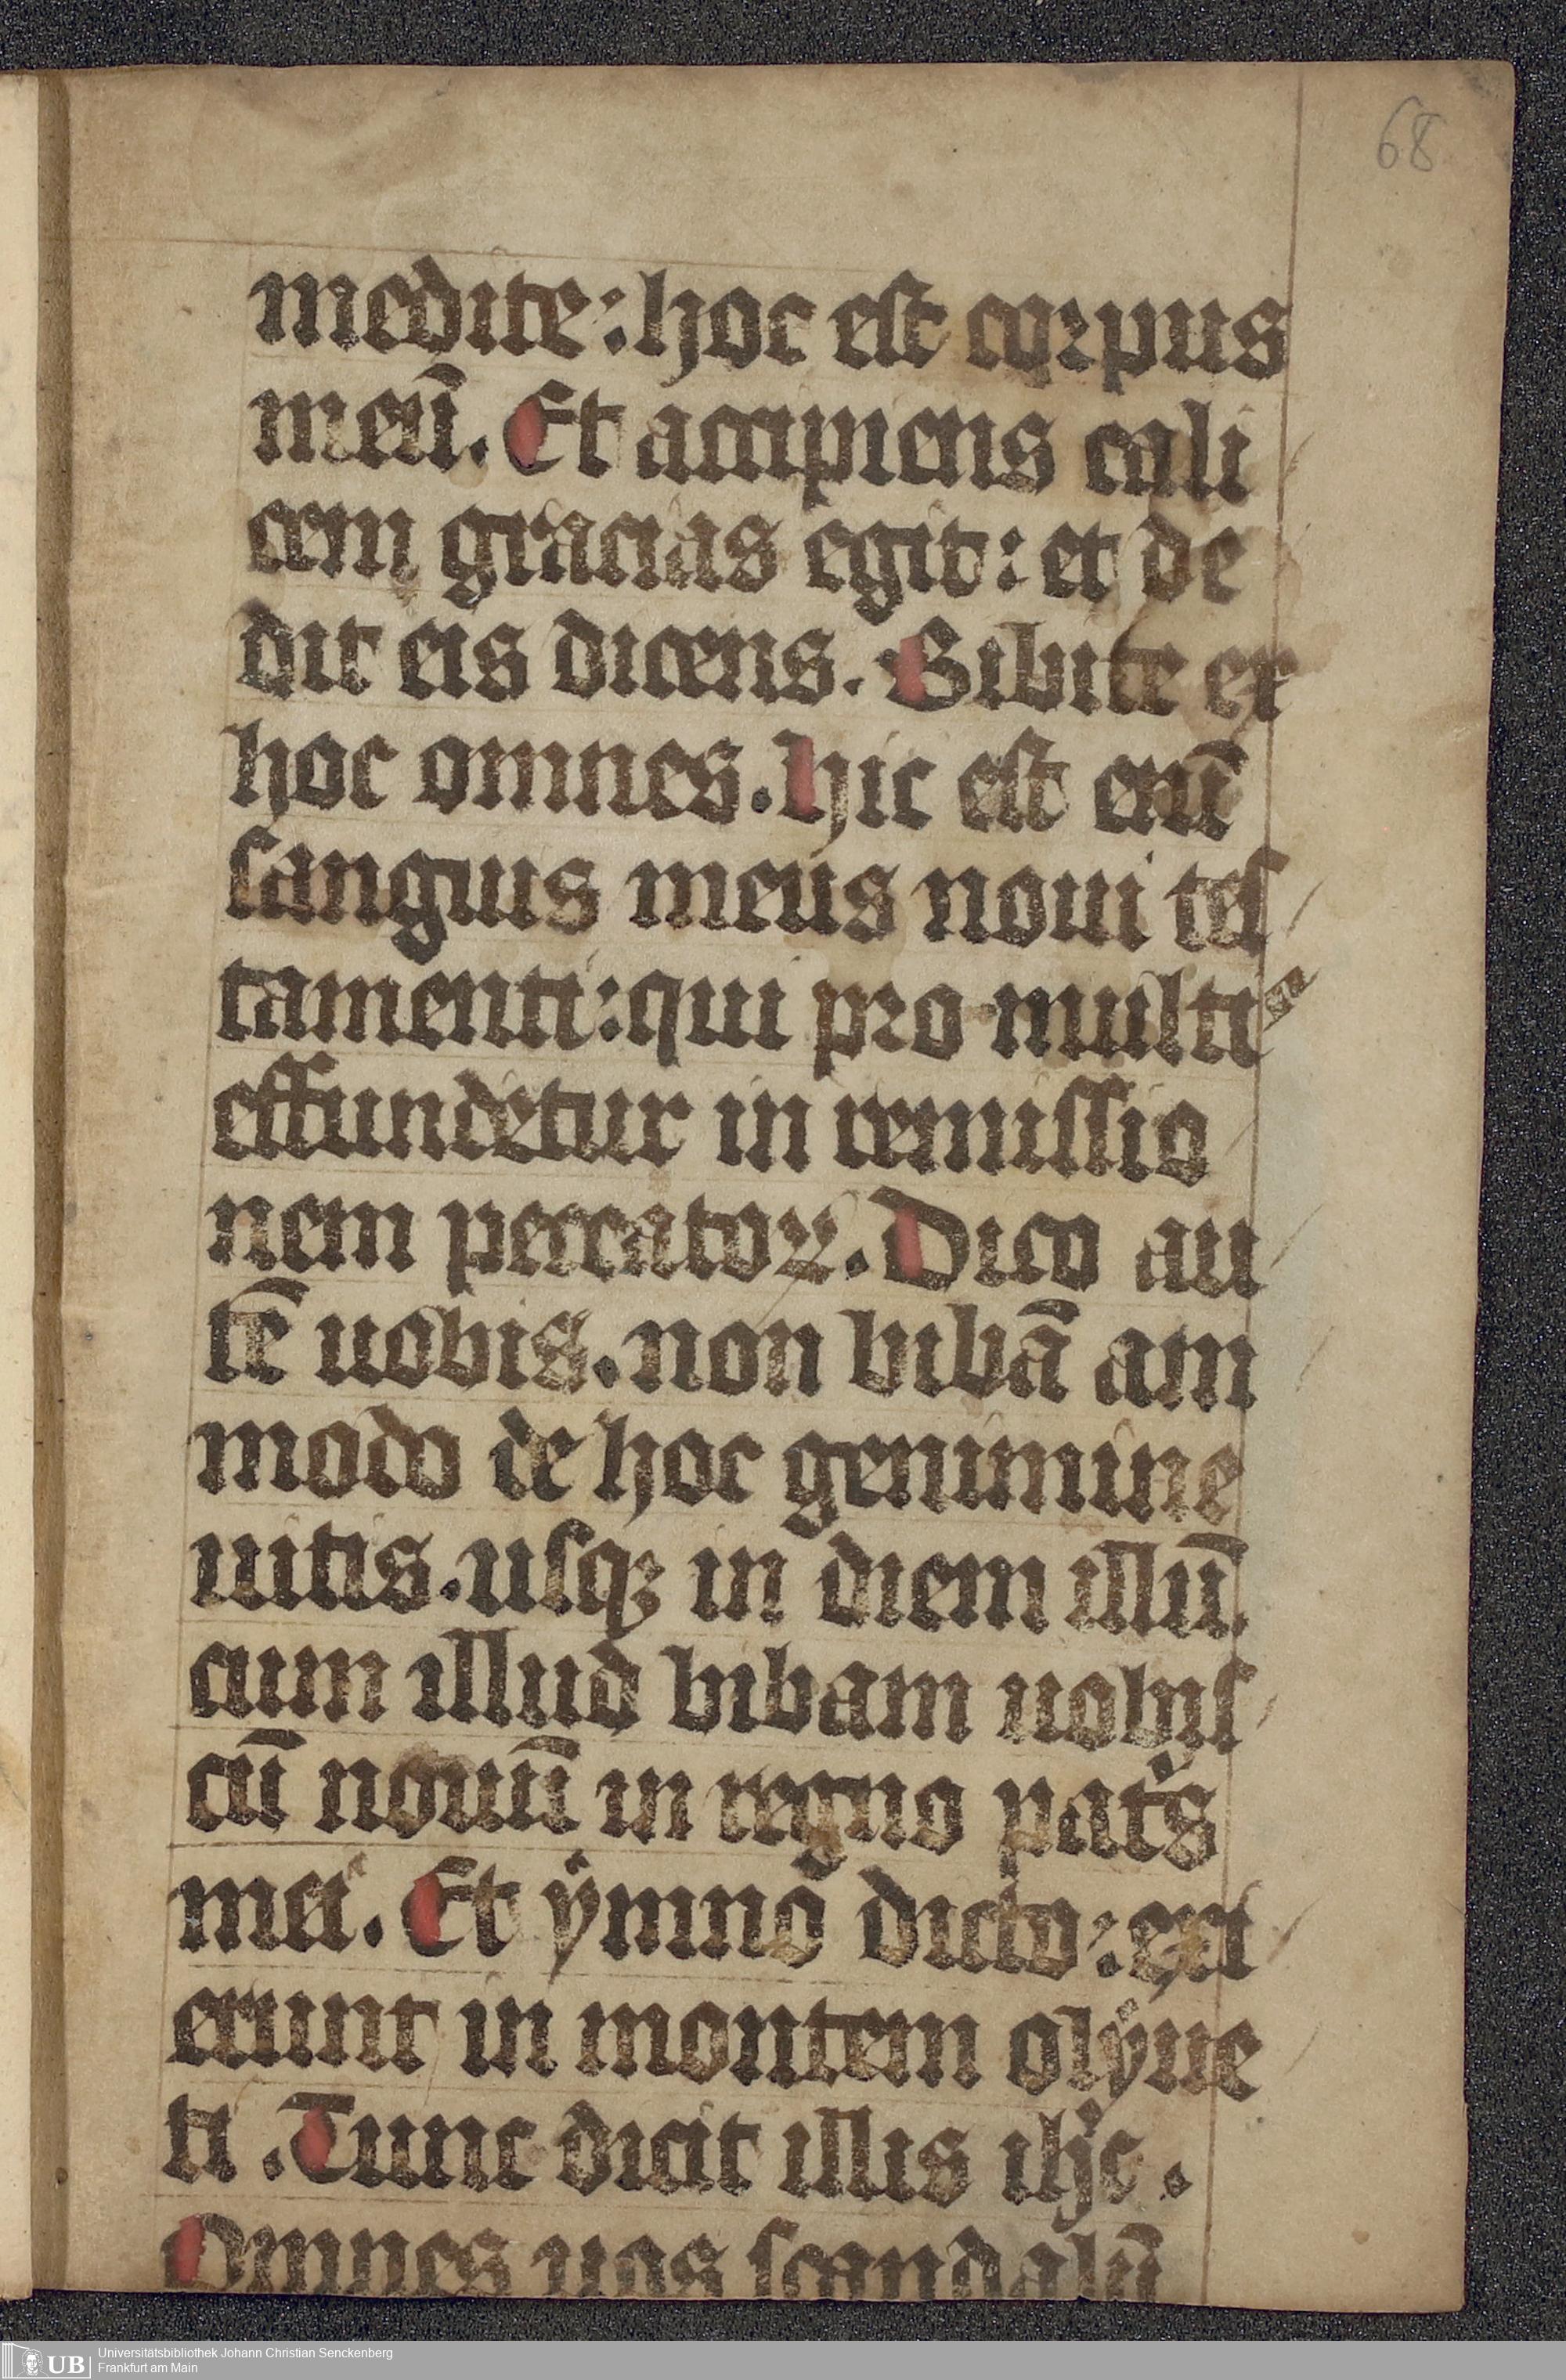 68
medite: hoc est corpus
meū. Et accipiens cali
cem gracias egit: et de
dit eis dicens. Bibite ex
hoc omnes. hic est eniī
sanguis meus noui tes
tamenti: qui pro multis
effundetur in remissio
nem peccatoꝝ. Dico au
tē uobis. non bibā am
modo de hoc genimine
uitis. usqꝫ in diem illū.
cum illud bibam uobis
cū nouū in regno pat͛s
mei. Et ẏmno dicto: exi
erunt in montem olẏue
ti. Tunc dicit illis ihc.
Omnes uos scandalū
Universitätsbibliothek Johann Christian Senckenberg
Frankfurt am Main
UB